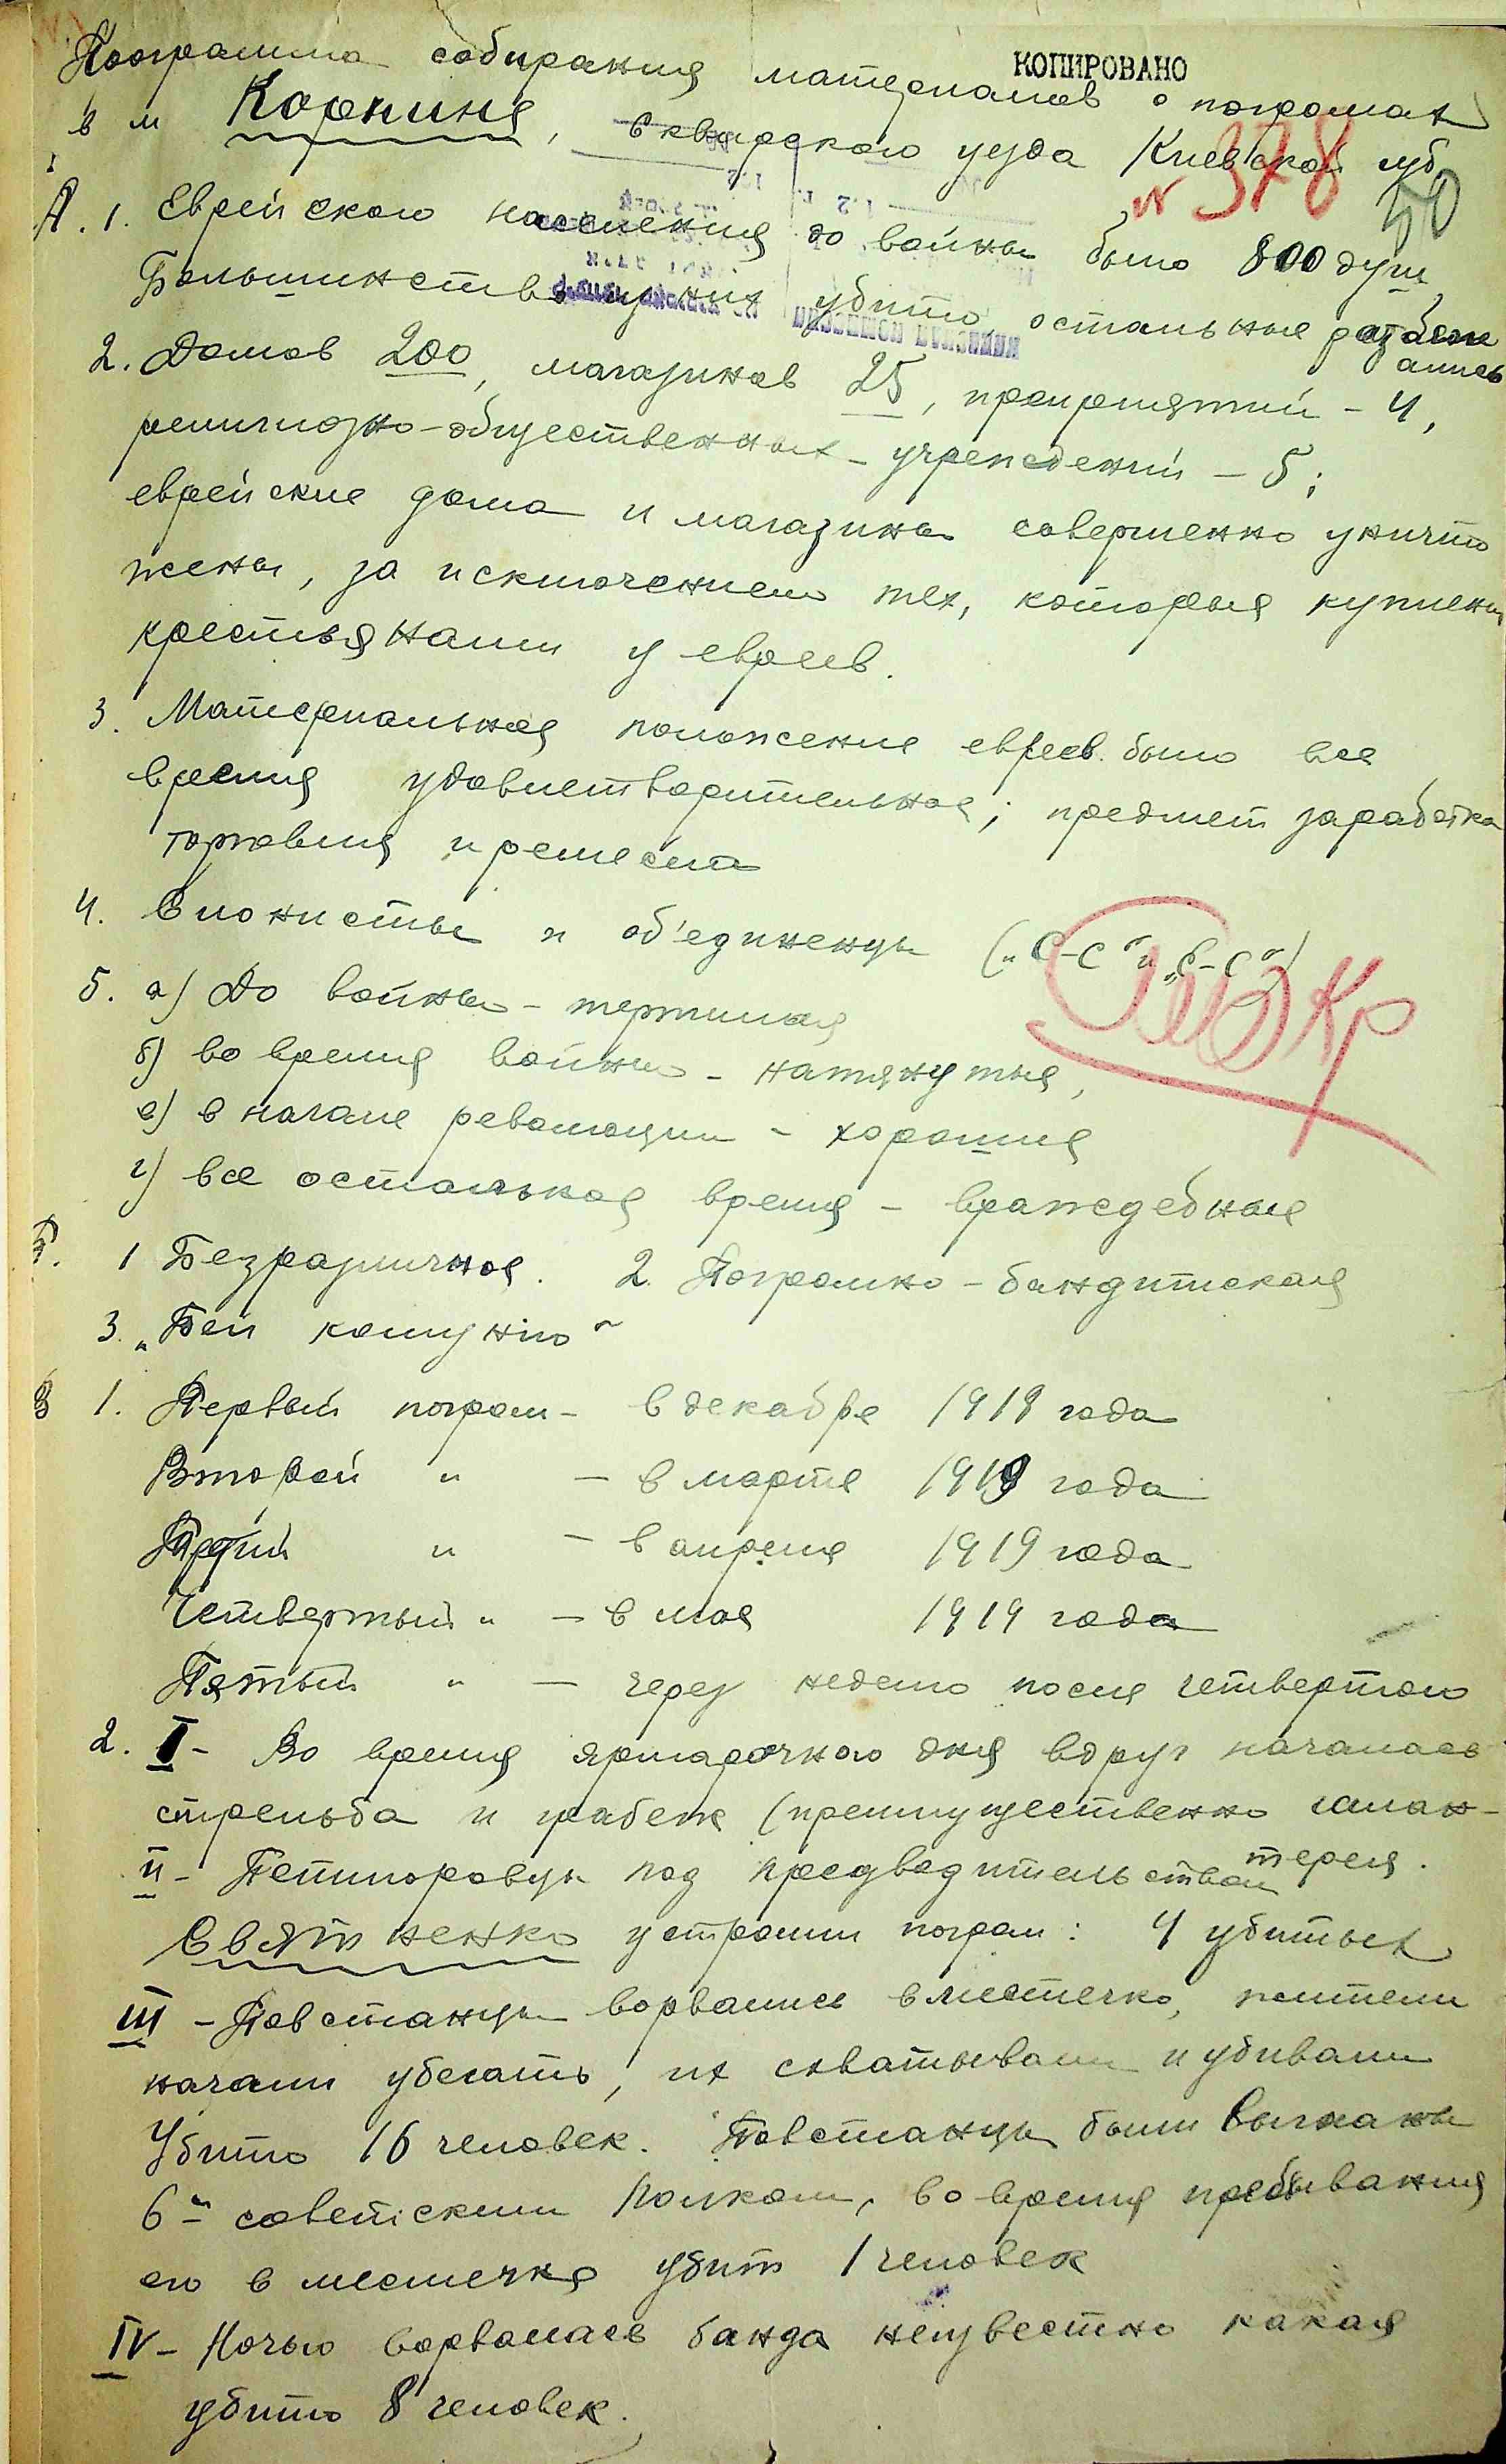 КОПИРОВАНО
Программа собирания материалов о погромах
в м Корнине, Сквирского уезда Киевской губ
№ 378
50
А. 1. Еврейского населения до войны было 800 душ,
Большинство из них убито, остальные разбеж
ались
2. Домов 200, магазинов 25, предприятий - 4,
религиозно-общественных - учреждений - 5;
еврейские дома и магазины совершенно уничто
жены, за исключением тех, которые куплены
крестьянами у евреев.
3. Материальное положение евреев. было все
время удовлетворительное; предмет заработка
торговля и ремесла
4. Сионисты и об'единенцы („С-С“ и „Е-С“)
5. а) До войны - терпимая
б) во время войны - натянутые,
в) в начале революции - хорошие
г) все остальное время - враждебные
Б. 1 Безразличное. 2. Погромно - бандитская
3. „Бей комунію“
В 1. Первый погром - в декабре 1918 года
Второй " - в марте 1919 года
Третий " - в апреле 1919 года
Четвертый " - в мае 1919 года
Пятый " - через неделю после четвертого
2. I - Во время ярмарочного дня вдруг началась
стрельба и грабеж (преимущественно галан-
терея.
II - Петлюровцы под предводительством
Святненко устроили погром: 4 убитых
III - Повстанцы ворвались в местечко, жители
начали убегать, их схватывали и убивали
Убито 16 человек. Повстанцы были выгнаны
6м советским полком, во время пребывания
его в местечке убит 1 человек
IV - Ночью ворвалась банда неизвестно какая
убито 8 человек.